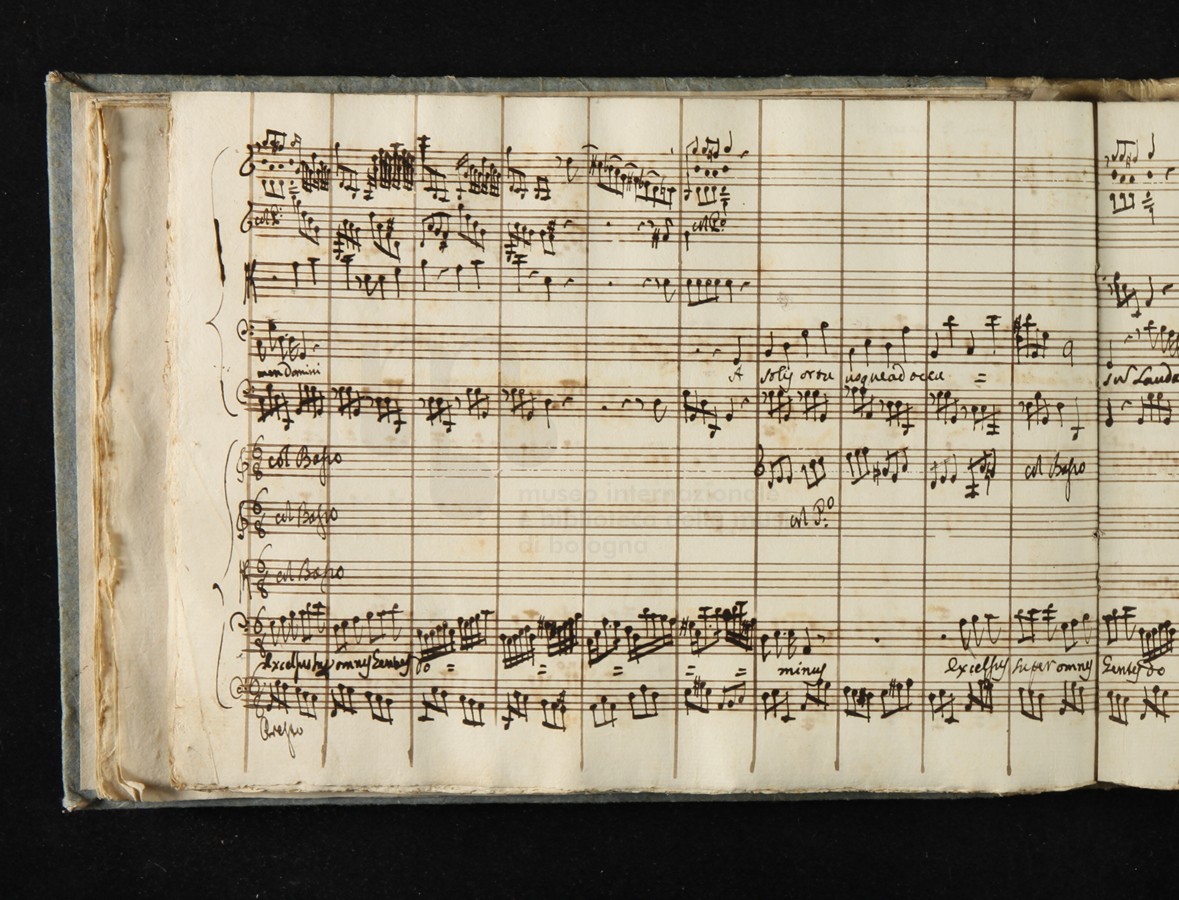 col P.º
col P.º
men Domini
A solis ortu usque ad occa =
sus Lauda
col Basso
col Basso
col P.º
col Basso
col Basso
museo internazionale
e biblioteca della musica
di bologna
excelsus super omnes Gentes Do = = = = = minus
excelsus super omnes Gentes Do
Presto